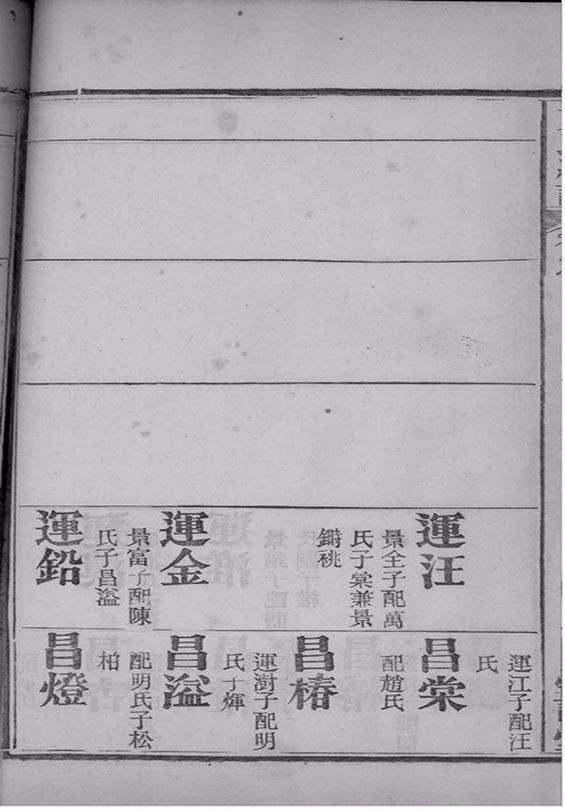 運汪
景全子配萬
氏子棠兼景
祧
運金
景富子配陳
氏子昌溢
運鉛
運江子配汪
氏
昌棠
配趙氏
昌椿
運澍子配明
氏子輝
昌溢
配明氏子松
柏
昌燈